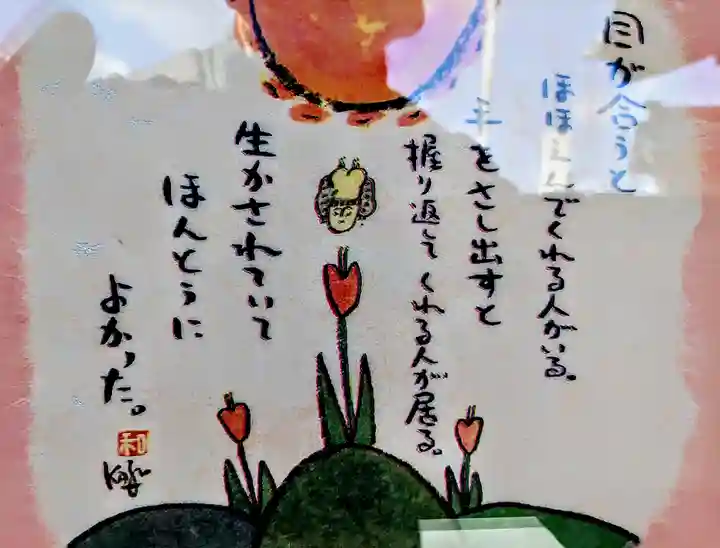 目が合うと
ほほえんでくれる人がいる。
手をさし出すと
握り返してくれる人が居る。
生かされていて
ほんとうに
よかった。
和